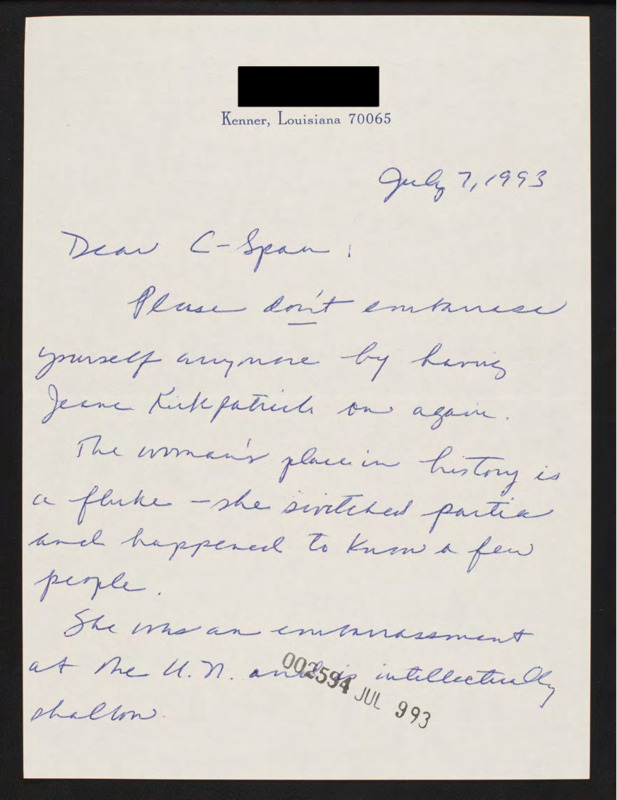 Kenner, Louisiana 70065
July 7, 1993
Dear C-Span:
Please don't embarrass
yourself anymore by having
Jeane Kirkpatrick on again.
The woman's place in history is
a fluke - she switched parties
and happened to know a few
people.
She was an embarrassment
at the U.N. and is intellectually
shallow.
002594 JUL 993